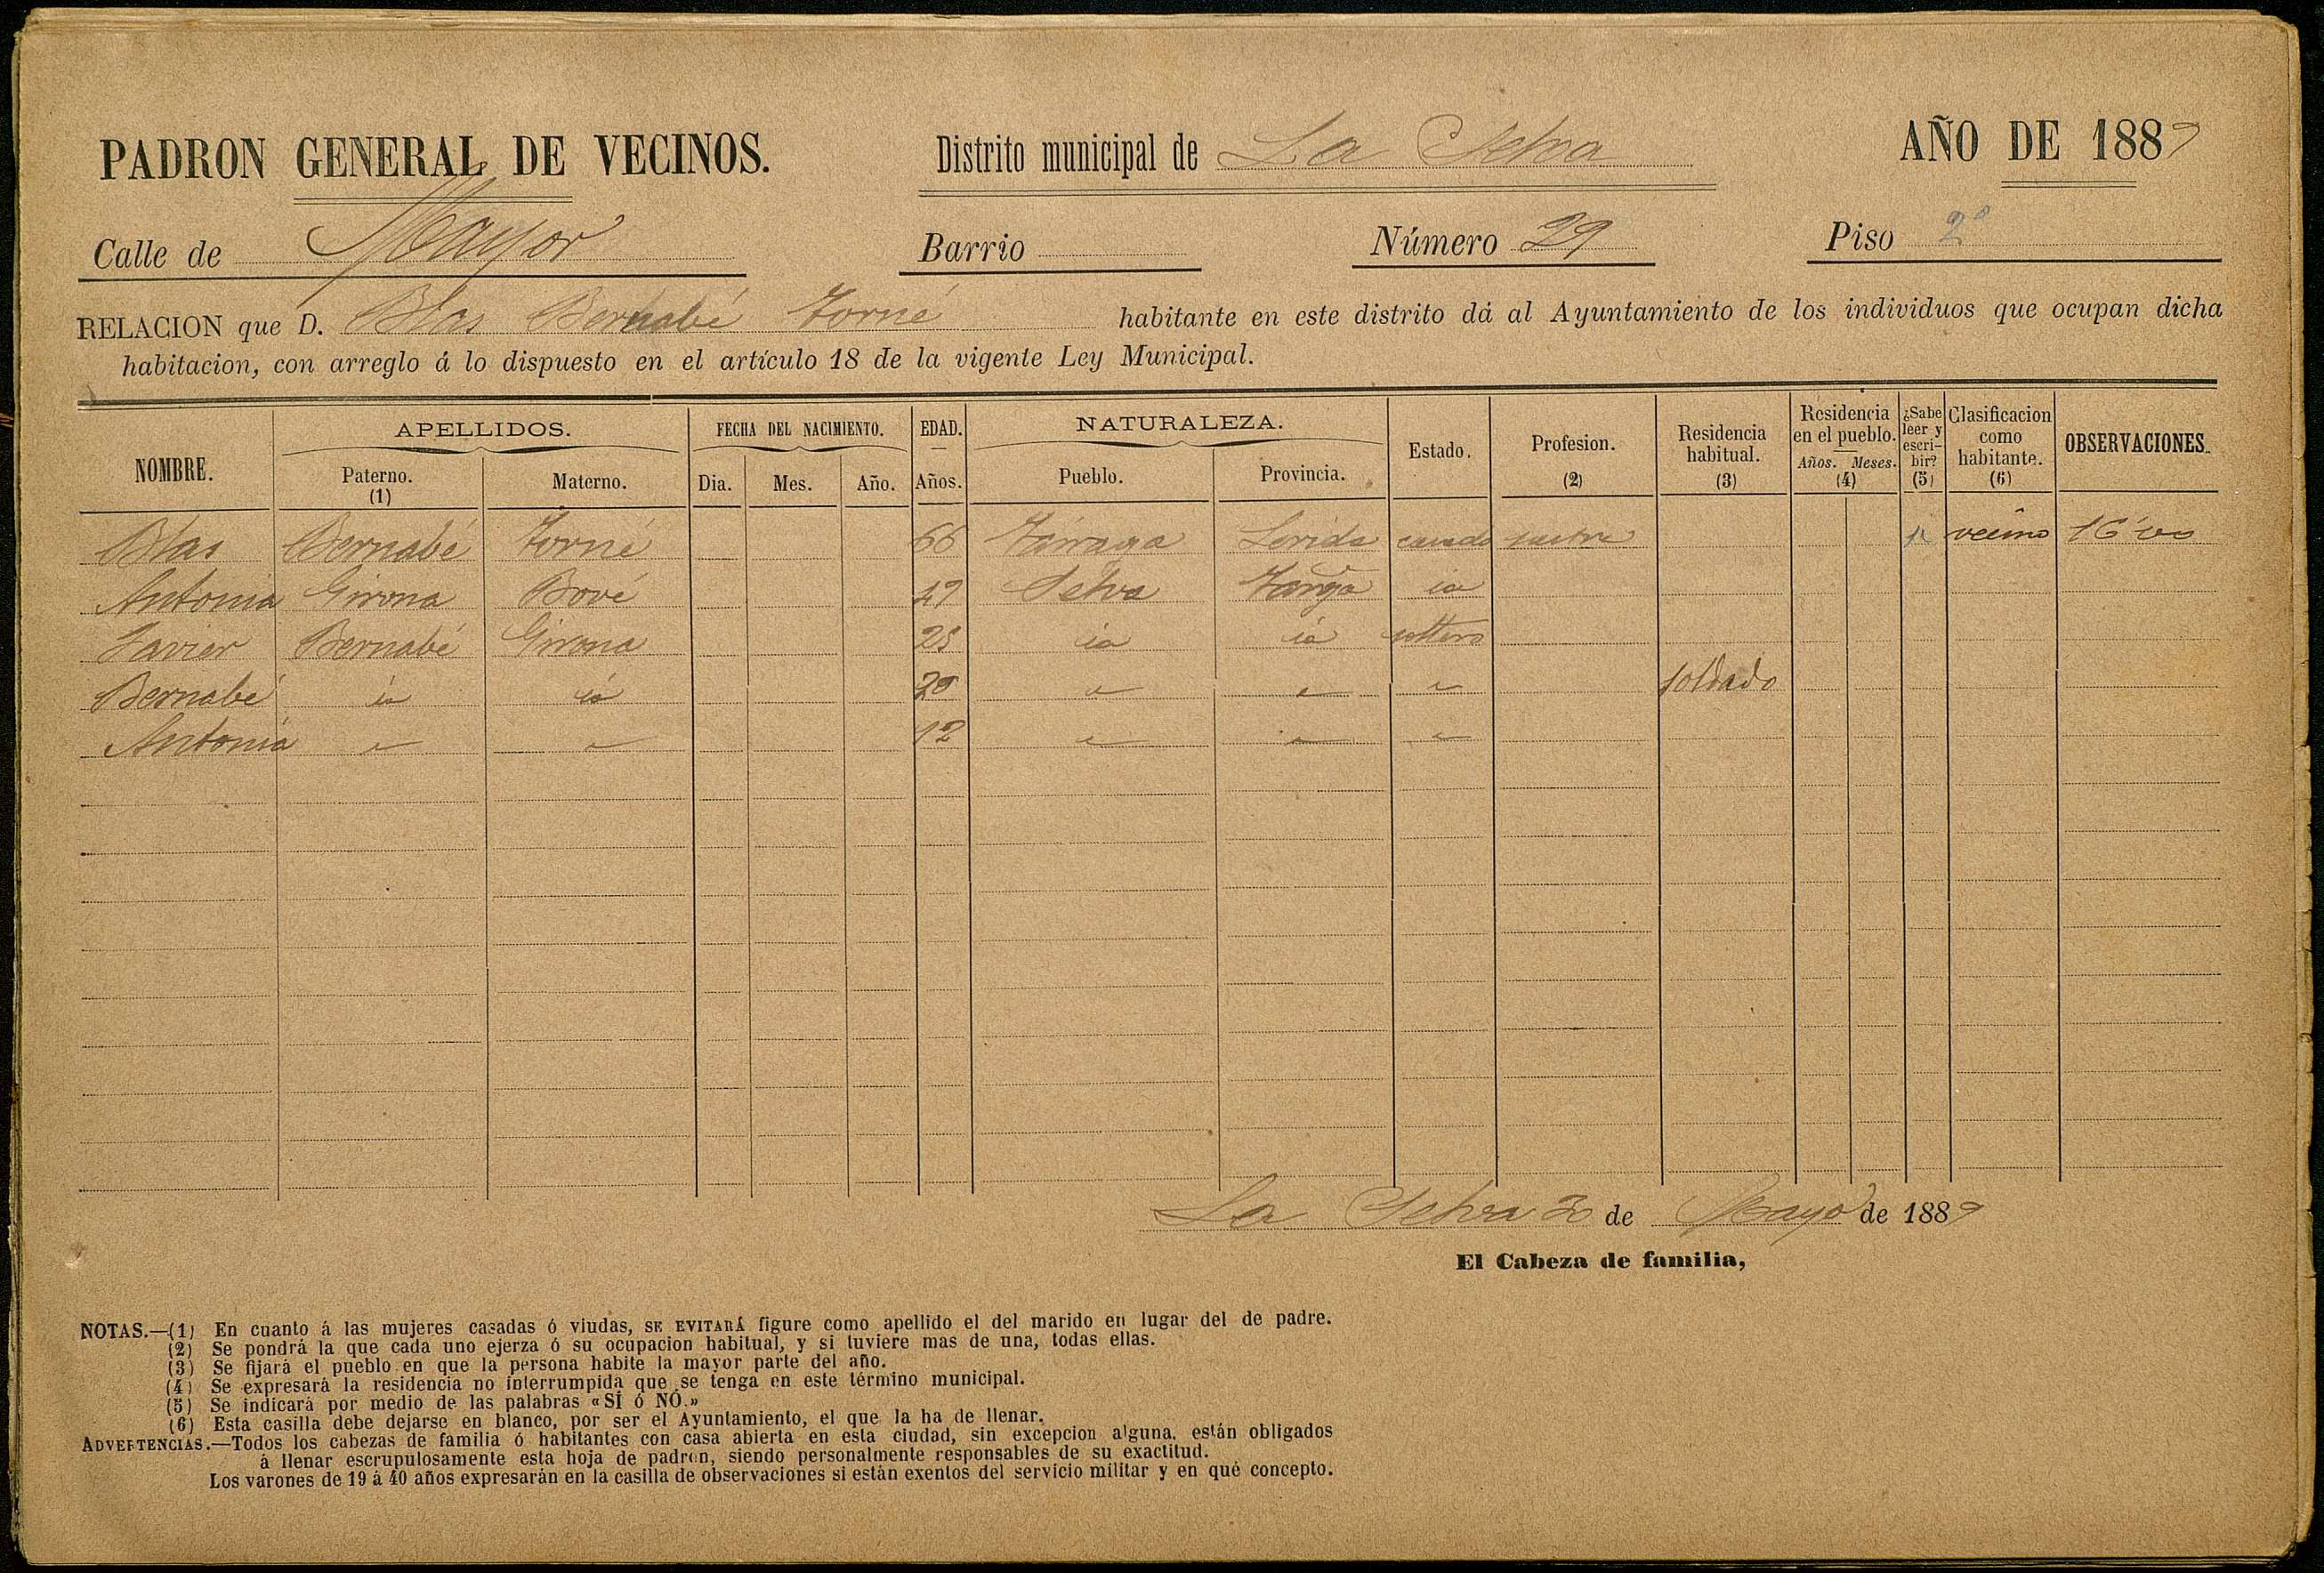 PADRON GENERAL DE VECINOS. Distrito municipal de La Selva AÑO DE 1889
Calle de Mayor Barrio Número 29 Piso 2º
RELACION que D. Blas Bernabé Torné habitante en este distrito dá al Ayuntamiento de los individuos que ocupan dicha
habitacion, con arreglo á lo dispuesto en el artículo 18 de la vigente Ley Municipal.
NOMBRE. APELLIDOS. Paterno. (1) Materno. FECHA DEL NACIMIENTO. Dia. Mes. Año. EDAD. Años. NATURALEZA. Pueblo. Provincia. Estado. Profesion. (2) Residencia habitual. (3) Residencia en el pueblo. Años. Meses. (4) ¿Sabe leer y escribir? (5) Clasificacion como habitante. (6) OBSERVACIONES.
Blas Bernabé Torné 66 Tárraga Lerida casado sastre si vecino
Antonia Girona Bové Selva Tarrga id
Javier Bernabé Girona 25 id id soltero
Bernabé id id 20 " " " soldado
Antonia " " 12 " " "
La Selva de Mayo de 1889
El Cabeza de familia,
NOTAS.—(1) En cuanto á las mujeres casadas ó viudas, SE EVITARÁ figure como apellido el del marido en lugar del de padre.
(2) Se pondrá la que cada uno ejerza ó su ocupacion habitual, y si tuviere mas de una, todas ellas.
(3) Se fijará el pueblo en que la persona habite la mayor parte del año.
(4) Se expresará la residencia no interrumpida que se tenga en este término municipal.
(5) Se indicará por medio de las palabras «SÍ ó NÓ.»
(6) Esta casilla debe dejarse en blanco, por ser el Ayuntamiento, el que la ha de llenar.
ADVERTENCIAS.—Todos los cabezas de familia ó habitantes con casa abierta en esta ciudad, sin excepcion alguna, están obligados
á llenar escrupulosamente esta hoja de padron, siendo personalmente responsables de su exactitud.
Los varones de 19 á 40 años expresarán en la casilla de observaciones si están exentos del servicio militar y en qué concepto.